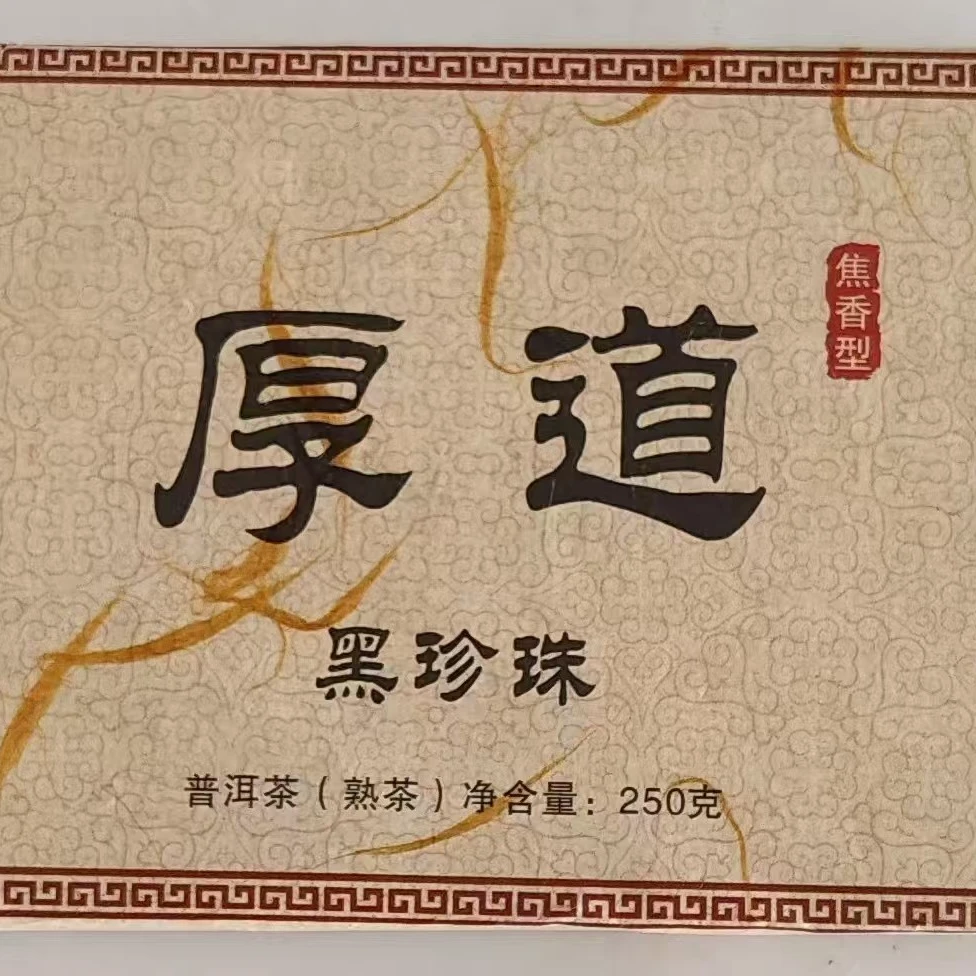 厚道
焦香型
黑珍珠
普洱茶（熟茶）净含量：250克